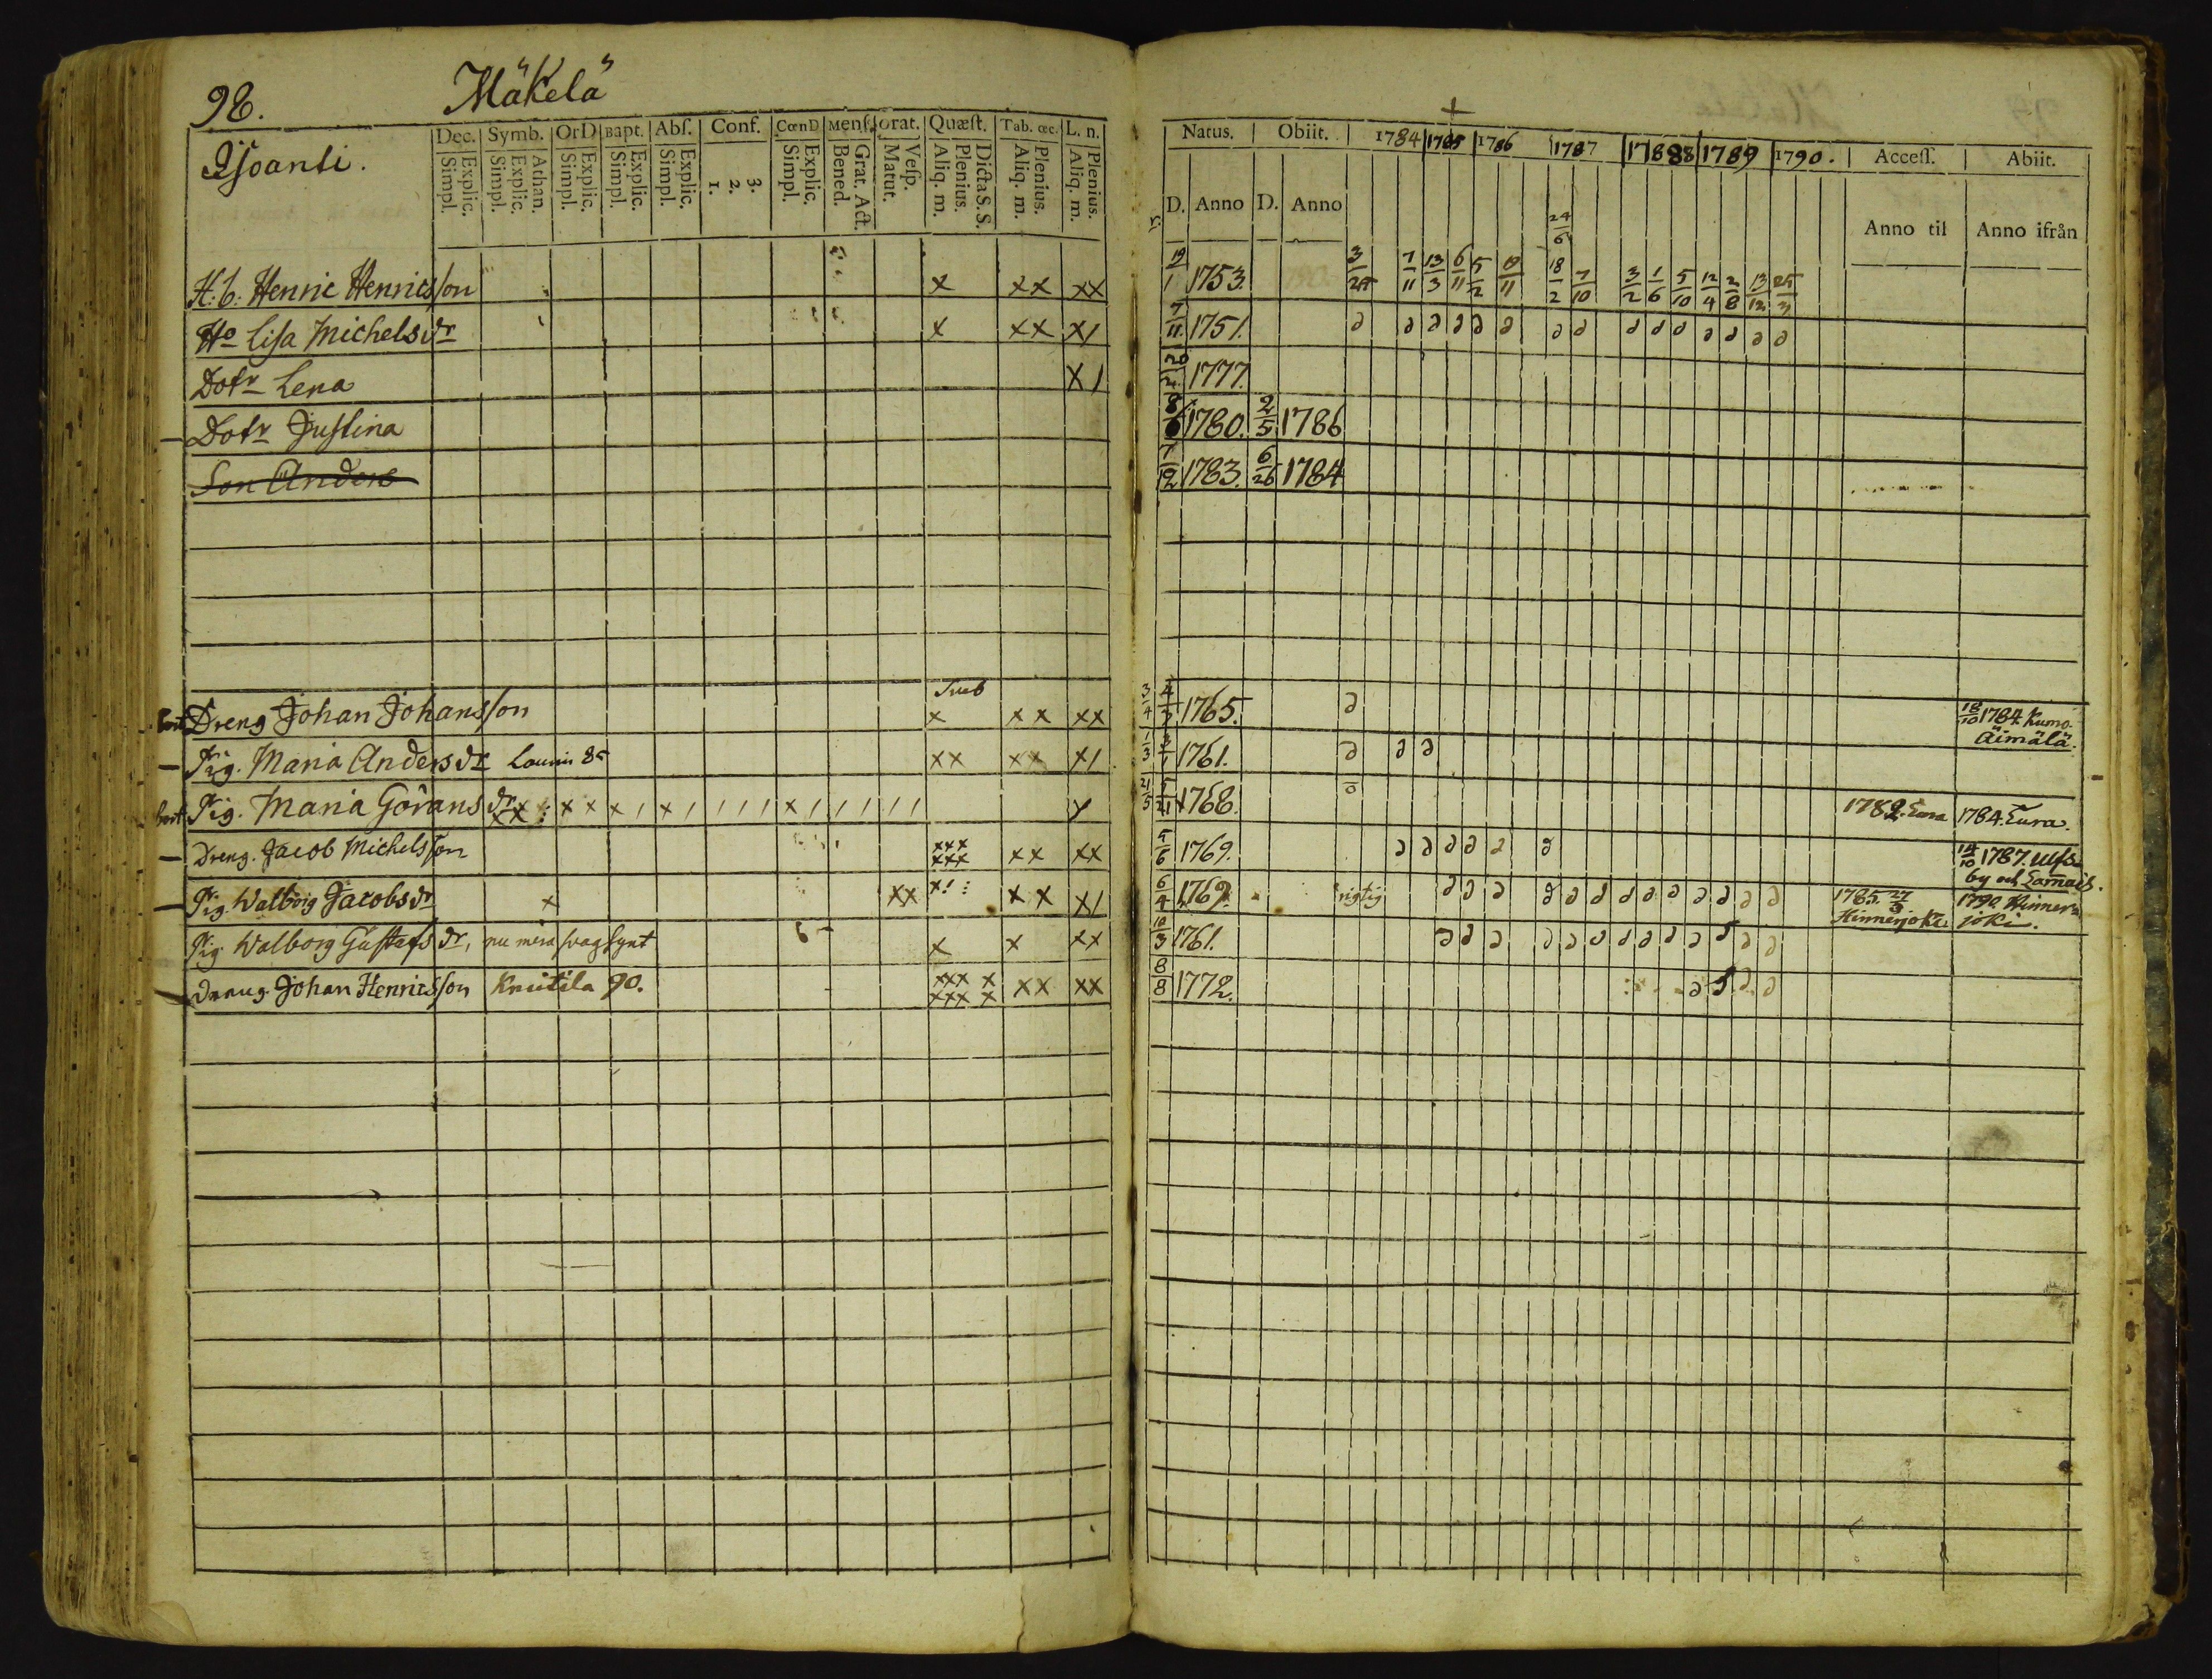 98. Mäkelä
Dec. Symb. OrD Bapt. Abſ. Conf. CœnD Menſ. orat. Quæſt. Tab. œc. L. n.
Explic. Simpl. Athan. Explic. Simpl. Explic. Simpl. Explic. Simpl. Explic. Simpl. 1. 2. 3. Explic. Simpl. Grat. Act. Bened. Veſp. Matut. Dicta S. S. Plenius. Aliq. m. Plenius. Aliq. m. Plenius. Aliq. m.
H. b. Henric Henricsſon x xx xx
Ho Liſa Michelsdr x xx x/
Dotr Lena x/
Dotr Juſtina
Son Anders
Dreng Johan Johansſon x xx xx
Pig. Maria Andersdr 85 xx xx x/
Pig. Maria Göransdr
Dreng. Jacob Michelsſon xxx xxx xx xx
Pig. Walborg Jacobsdr x xx xx x/
Pig Walborg Guſtafsdr, nu mera ſvagſynt x x xx
Dreng Johan Henricsſon Knutila 90. xxx x xxx x xx xx
Natus. Obiit. 1784 1785 1786 1787 1788 1789 1790. Acceſſ. Abiit.
D. Anno D. Anno Anno til Anno ifrån
24/6
19/1 1753. 3/25 7/11 13/3 6/11 5/2 19/11 18/2 7/10 3/2 1/6 5/10 12/4 2/8 13/12 25/3
7/11 1751.
20/2 1777.
8/6 1780. 2/5 1786
7/12 1783. 6/26 1784
3/4 1765. 18/10 1784. Kumo
Äimälä.
1/3 1761.
21/5 1768. 1782. Eura 1784. Eura.
5/6 1769. 14/10 1787. Ulfs
by och
6/4 1769. rigtig 1785. 27/3 1790. Hinner
Hinnerjoki joki.
10/3 1761.
8/8 1772.